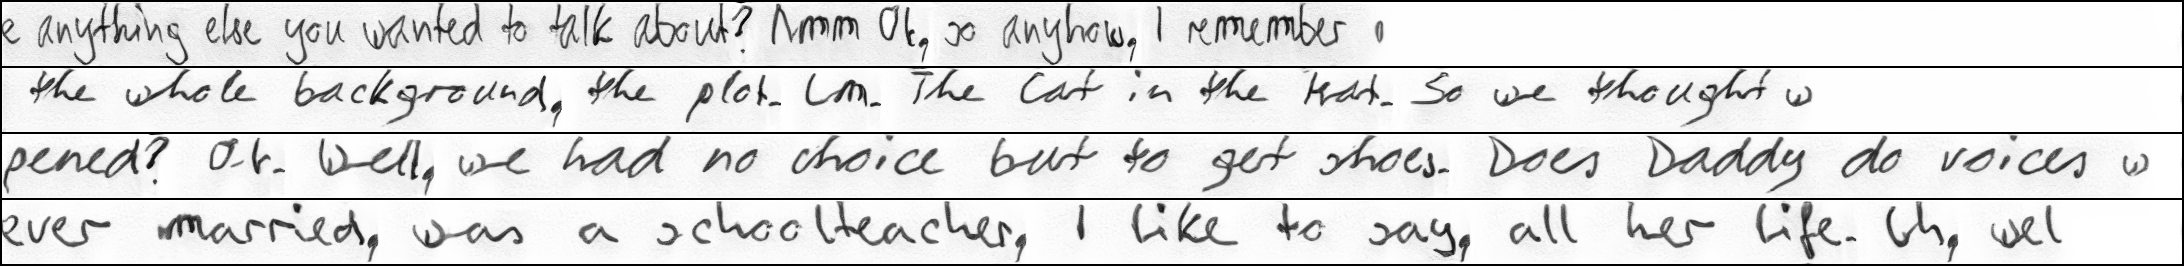 e anything else you wanted to talk about? Hmm Ok, so anyhow, I remember
the whole background, the plot. Um. The Cat in the Hat. So we thought w
pened? Ok. Well, we had no choice but to get shoes. Does Daddy do voices w
ever married, was a schoolteacher, I like to say, all her life. Uh, wel